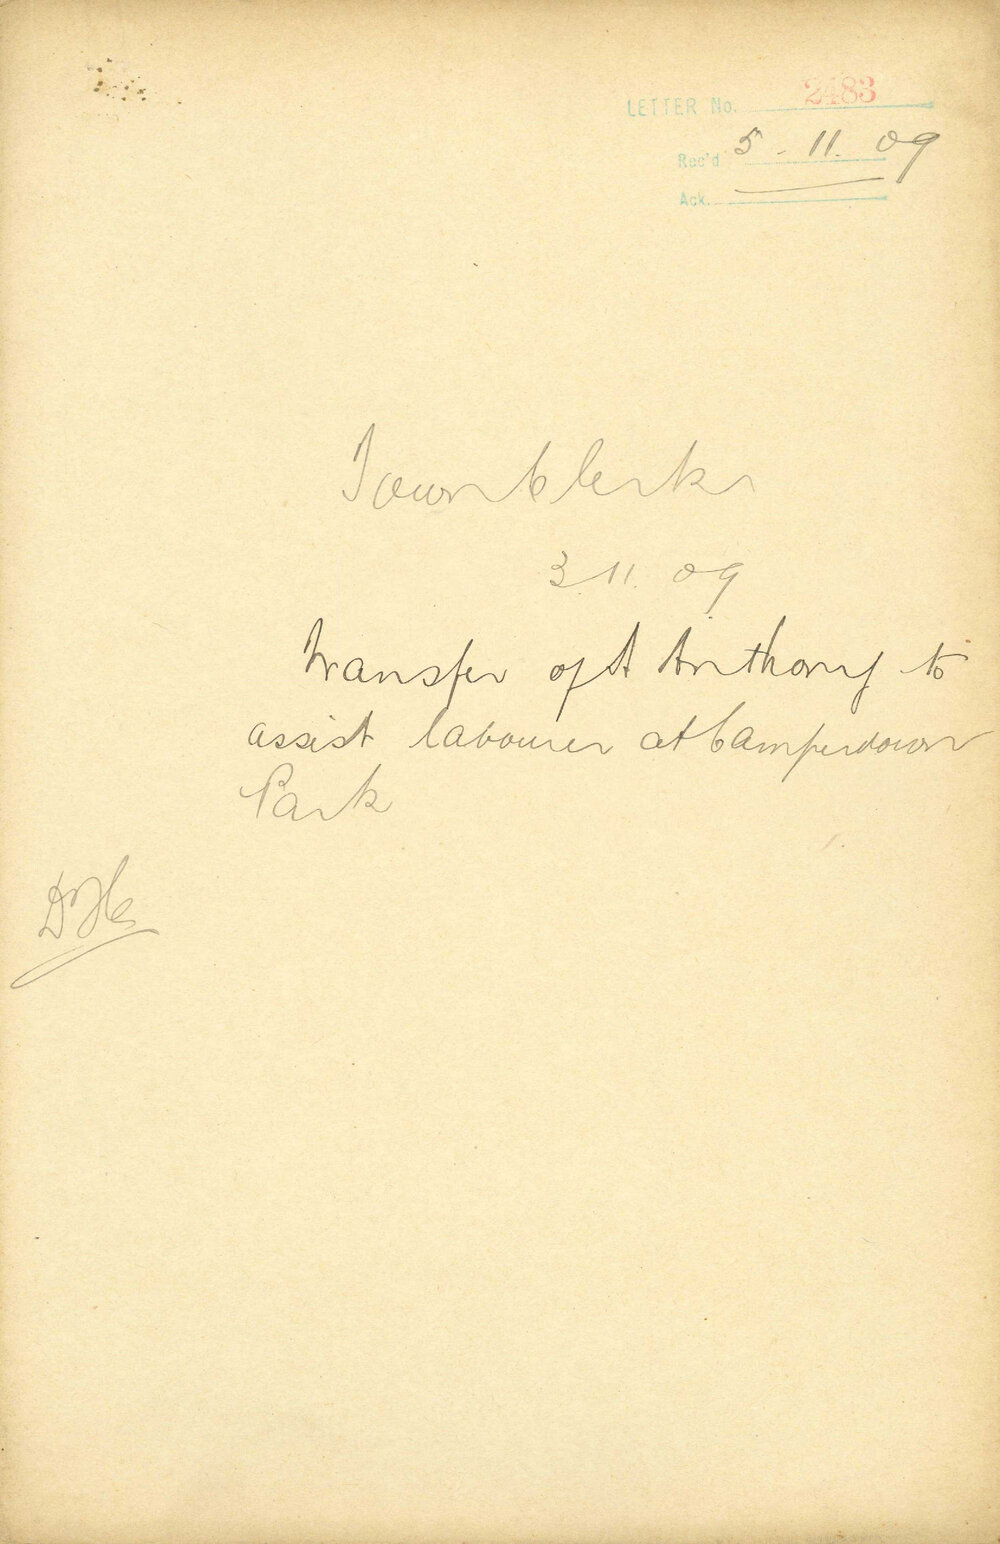 LETTER No. 2483
Rec'd 5-11.09
Ack.
Town Clerk
3.11.09
Transfer of A Anthony to
assist labourer at Camperdown
Park